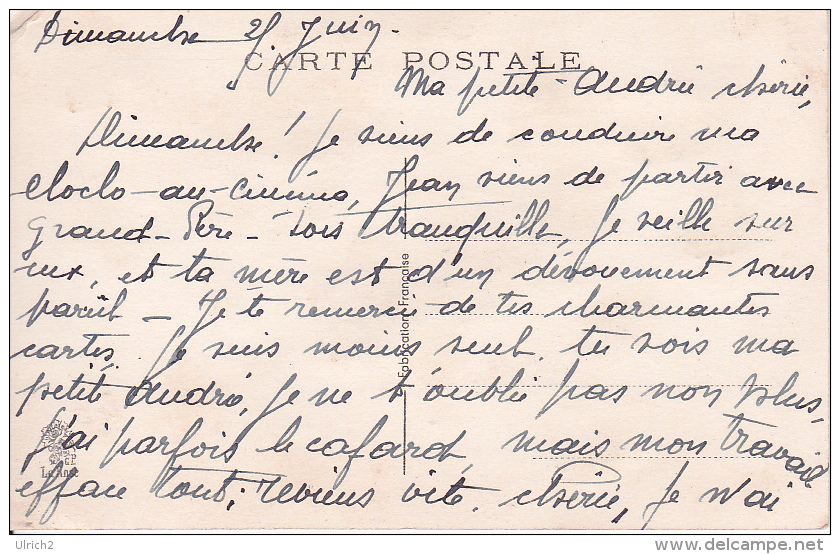 Dimanche 25 Juin.
CARTE POSTALE
Ma petite Andrée chérie,
Dimanche! Je viens de conduire ma
Cloclo-au-cinéma, Jean viens de partir avec
Grand-Père - Sois tranquille, je veille sur
eux, et ta mère est d'un dévouement sans
pareil - Je te remercie de tes charmantes
cartes. Je suis moins seul, tu vois ma
petite Andrée, je ne t'oublie pas non plus,
j'ai parfois le cafard, mais mon travail
efface tout; reviens vite, chérie, je n'ai
Fabrication Française
Ulrich2
www.delcampe.net